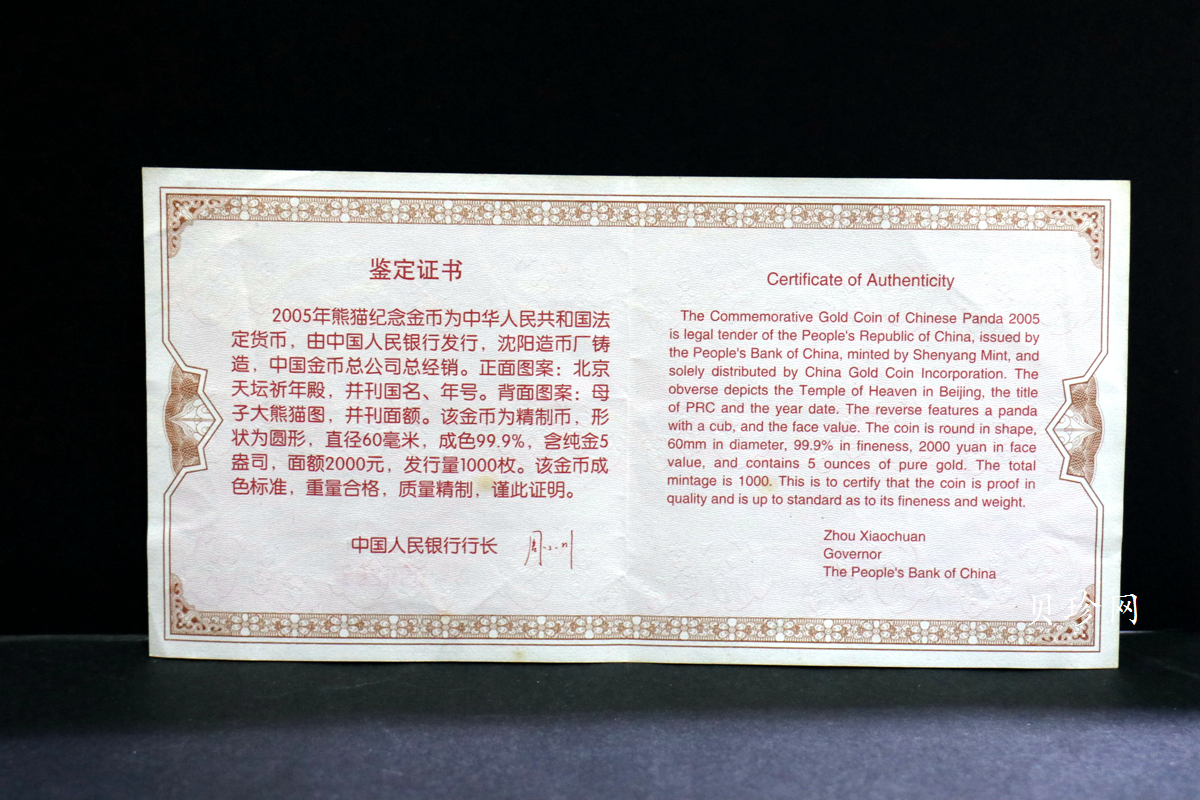 鉴定证书
2005年熊猫纪念金币为中华人民共和国法
定货币，由中国人民银行发行，沈阳造币厂铸
造，中国金币总公司总经销。正面图案：北京
天坛祈年殿，并刊国名、年号。背面图案：母
子大熊猫图，并刊面额。该金币为精制币，形
状为圆形，直径60毫米，成色99.9%，含纯金5
盎司，面额2000元，发行量1000枚。该金币成
色标准，重量合格，质量精制，谨此证明。
中国人民银行行长 周小川
Certificate of Authenticity
The Commemorative Gold Coin of Chinese Panda 2005
is legal tender of the People's Republic of China, issued by
the People's Bank of China, minted by Shenyang Mint, and
solely distributed by China Gold Coin Incorporation. The
obverse depicts the Temple of Heaven in Beijing, the title
of PRC and the year date. The reverse features a panda
with a cub, and the face value. The coin is round in shape,
60mm in diameter, 99.9% in fineness, 2000 yuan in face
value, and contains 5 ounces of pure gold. The total
mintage is 1000. This is to certify that the coin is proof in
quality and is up to standard as to its fineness and weight.
Zhou Xiaochuan
Governor
The People's Bank of China
贝珍网